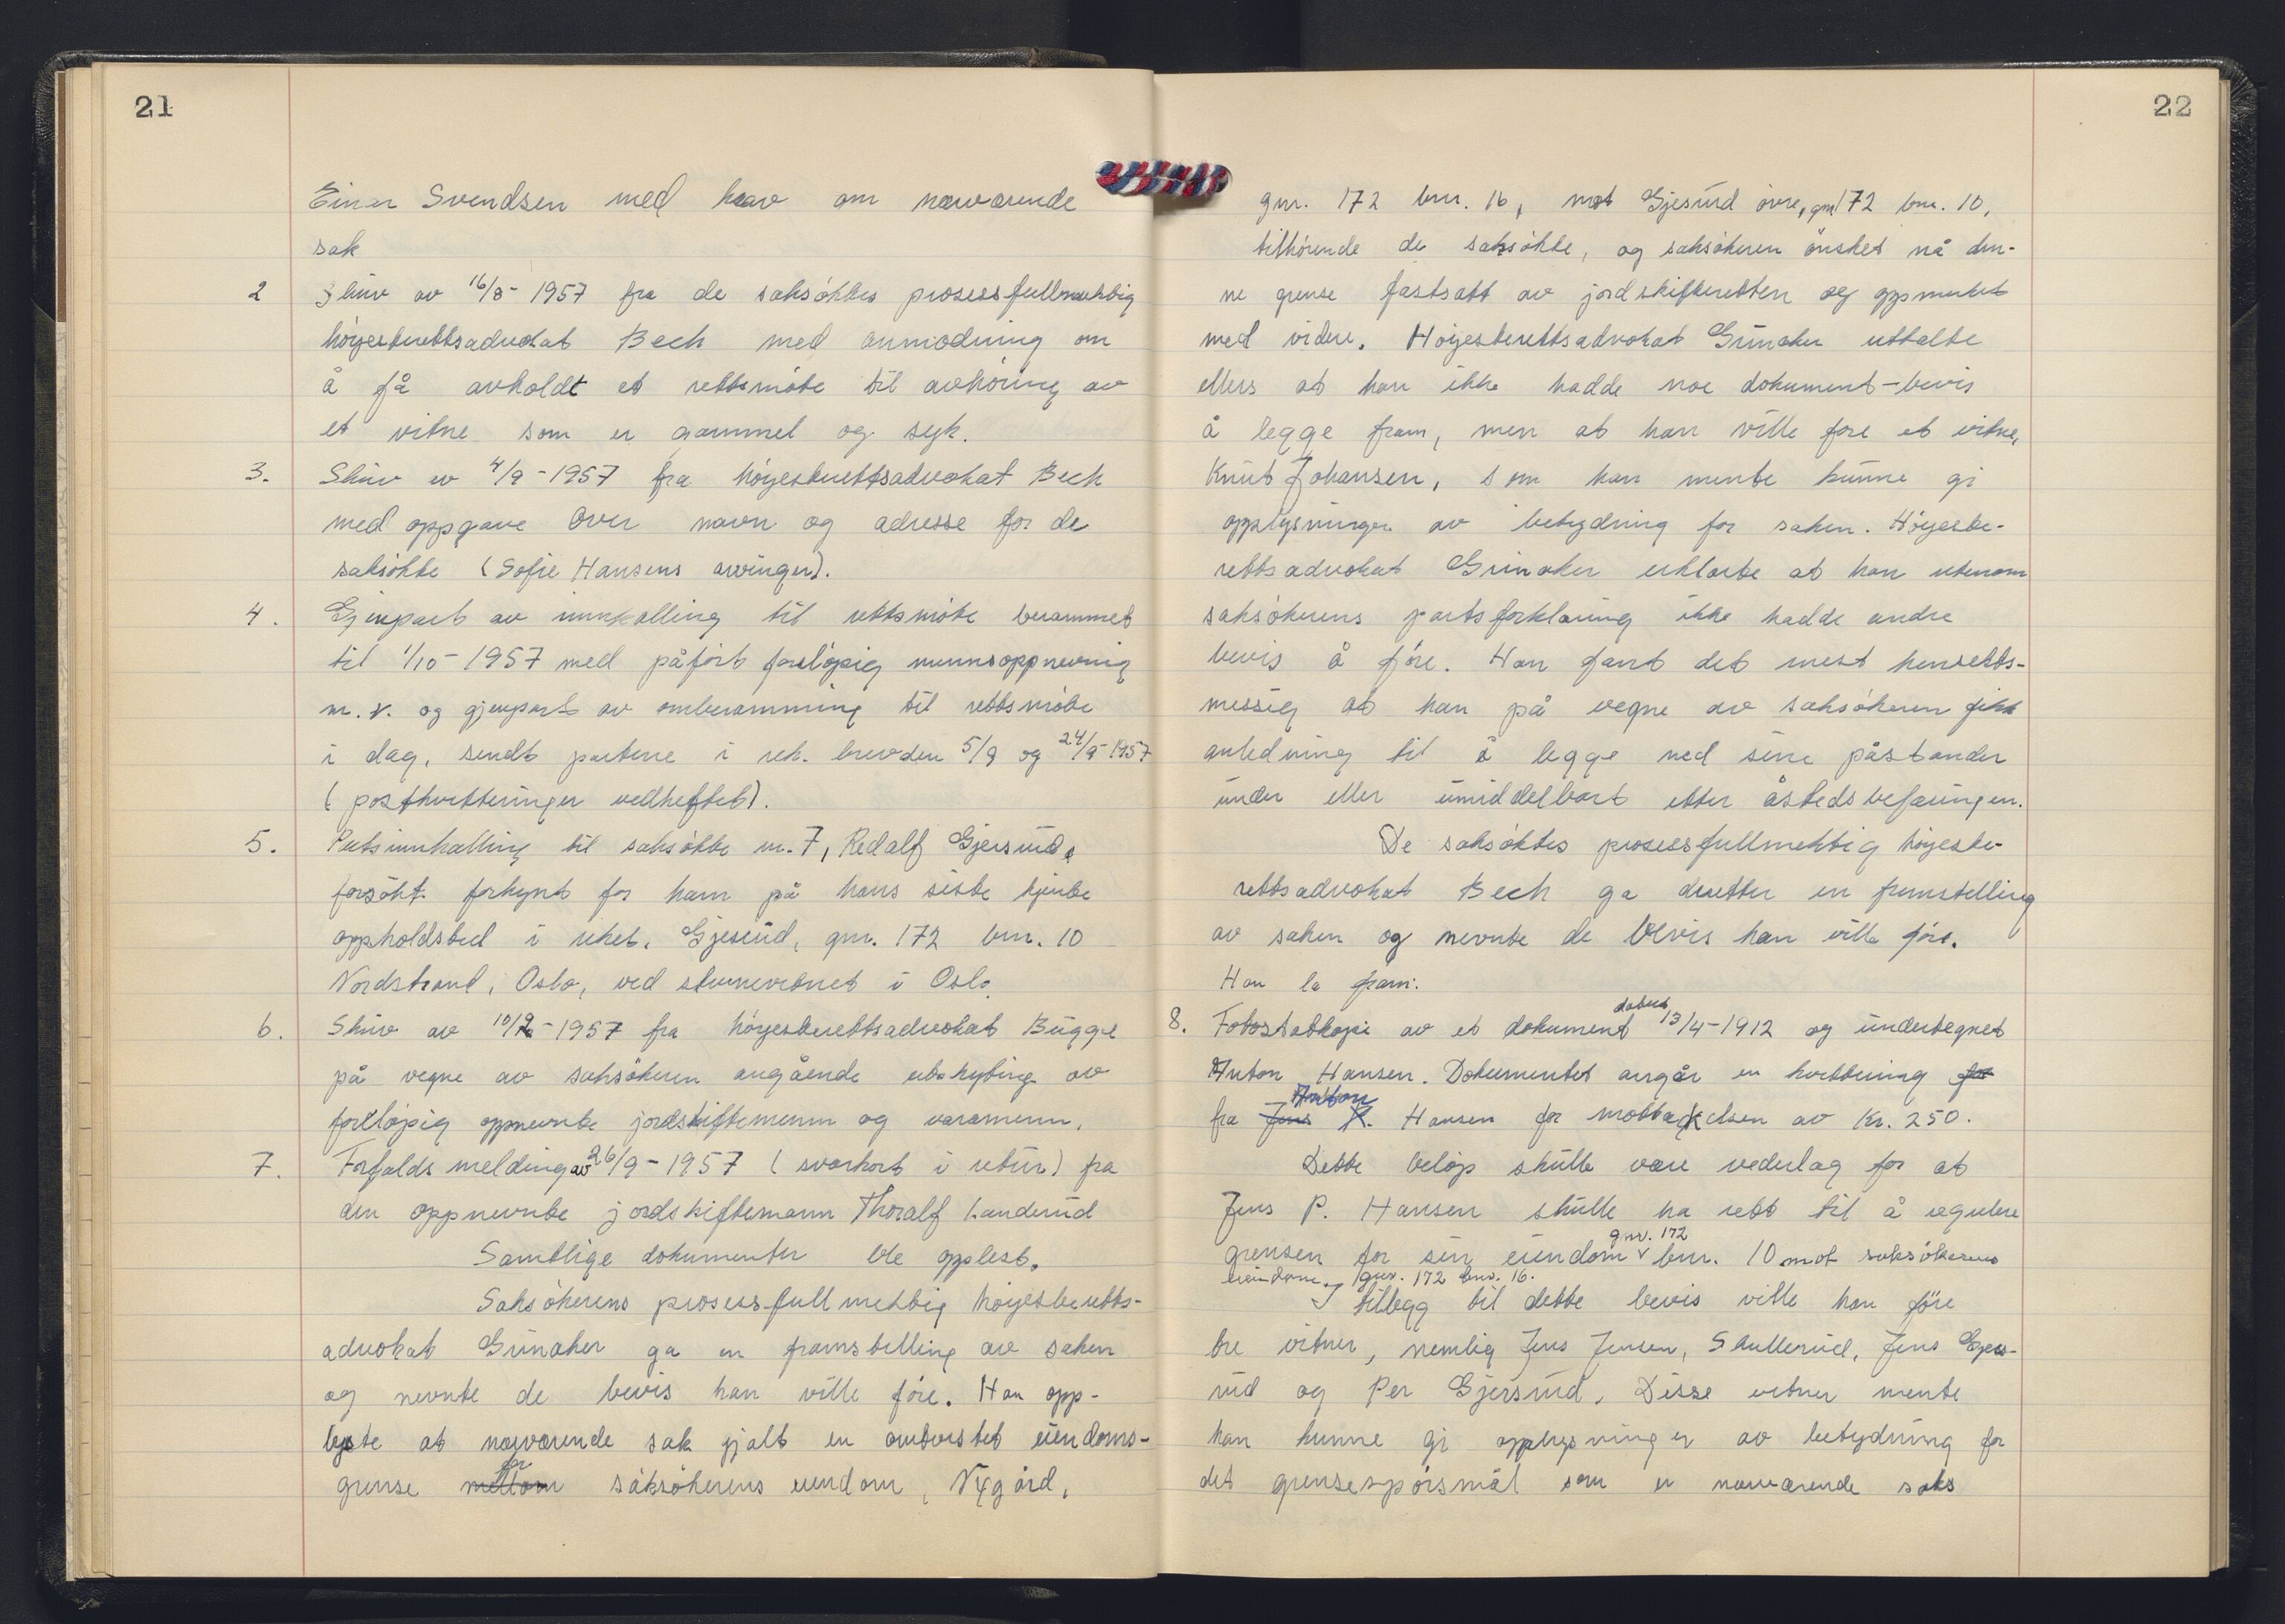 21
Einar Svendsen med krav om nærværende
sak
2 Skriv av 16/8-1957 fra de saksøktes prosessfullmektig
høyesterettsadvokat Bech med anmodning om
å få avholdt et rettsmøte til avhøring av
et vitne som er gammel og syk.
3. Skriv av 4/9-1957 fra høyesterettsadvokat Bech
med oppgave over navn og adresse for de
saksøkte (Sofie Hansens arvinger).
4. Gjenpart av innkalling til rettsmøte berammet
til 1/10-1957 med påført foreløpig mennsoppnevning
m.v. og gjenpart av omberamming til rettsmøte
i dag, sendt partene i rek. brev den 5/9 og 24/9-1957
(postkvitteringer vedheftet).
5. Rettsinnkalling til saksøkte nr. 7, Redalf Gjersrud,
forsøkt forkynt for ham på hans siste kjente
oppholdsted i riket, Gjersrud, gnr. 172 bnr. 10
Nordstrand, Oslo, ved stevnevitnet i Oslo.
6. Skriv av 10/9-1957 fra høyesterettsadvokat Bugge
på vegne av saksøkeren angående utskyting av
foreløpig oppnevnte jordskiftemenn og varamenn.
7. Forfalds melding av 26/9-1957 (svarkort i retur) fra
den oppnevnte jordskiftemann Thoralf Landerud
Samtlige dokumenter ble opplest.
Saksøkerens prosessfullmektig høyesteretts-
advokat Grinaker ga en framstilling av saken
og nevnte de bevis han ville føre. Han opp-
lyste at nærværende sak gjalt en omtvistet eiendoms-
grense mellom for saksøkerens eiendom, Nygård,
22
gnr. 172 bnr. 16, mot Gjersrud øvre, gnr 172 bnr. 10,
tilhørende de saksøkte, og saksøkeren ønsket nå den-
ne grense fastsatt av jordskifteretten og oppmerket
med videre. Høyesterettsadvokat Grinaker uttalte
ellers at han ikke hadde noe dokument-bevis
å legge fram, men at han ville føre et vitne,
Knut Johansen, som han mente kunne gi
opplysninger av betydning for saken. Høyeste-
rettsadvokat Grinaker erklærte at han utenom
saksøkerens partsforklaring ikke hadde andre
bevis å føre. Han fant det mest hensikts-
messig at han på vegne av saksøkeren fikk
anledning til å legge ned sine påstander
under eller umiddelbart etter åstedsbefaringen.
De saksøktes prosessfullmektig høyeste-
rettsadvokat Bech ga deretter en fremstilling
av saken og nevnte de bevis han ville føre.
Han la fram:
8. Fotostatkopi av et dokument datert 13/4-1912 og undertegnet
Anton Hansen. Dokumentet angår en kvittering for
fra Jens Anton P. Hansen for mottakelsen av Kr. 250.
Dette beløp skulle være vederlag for at
Jens P. Hansen skulle ha rett til å regulere
grensen for sin eiendom gnr. 172 bnr. 10 mot saksøkerens
eiendom, gnr. 172 bnr. 16.
I tillegg til dette bevis ville han føre
tre vitner, nemlig Jens Jensen, Skullerud, Jens Gjers-
rud og Per Gjersrud. Disse vitner mente
han kunne gi opplysninger av betydning for
det grensespørsmål som er nærværende saks